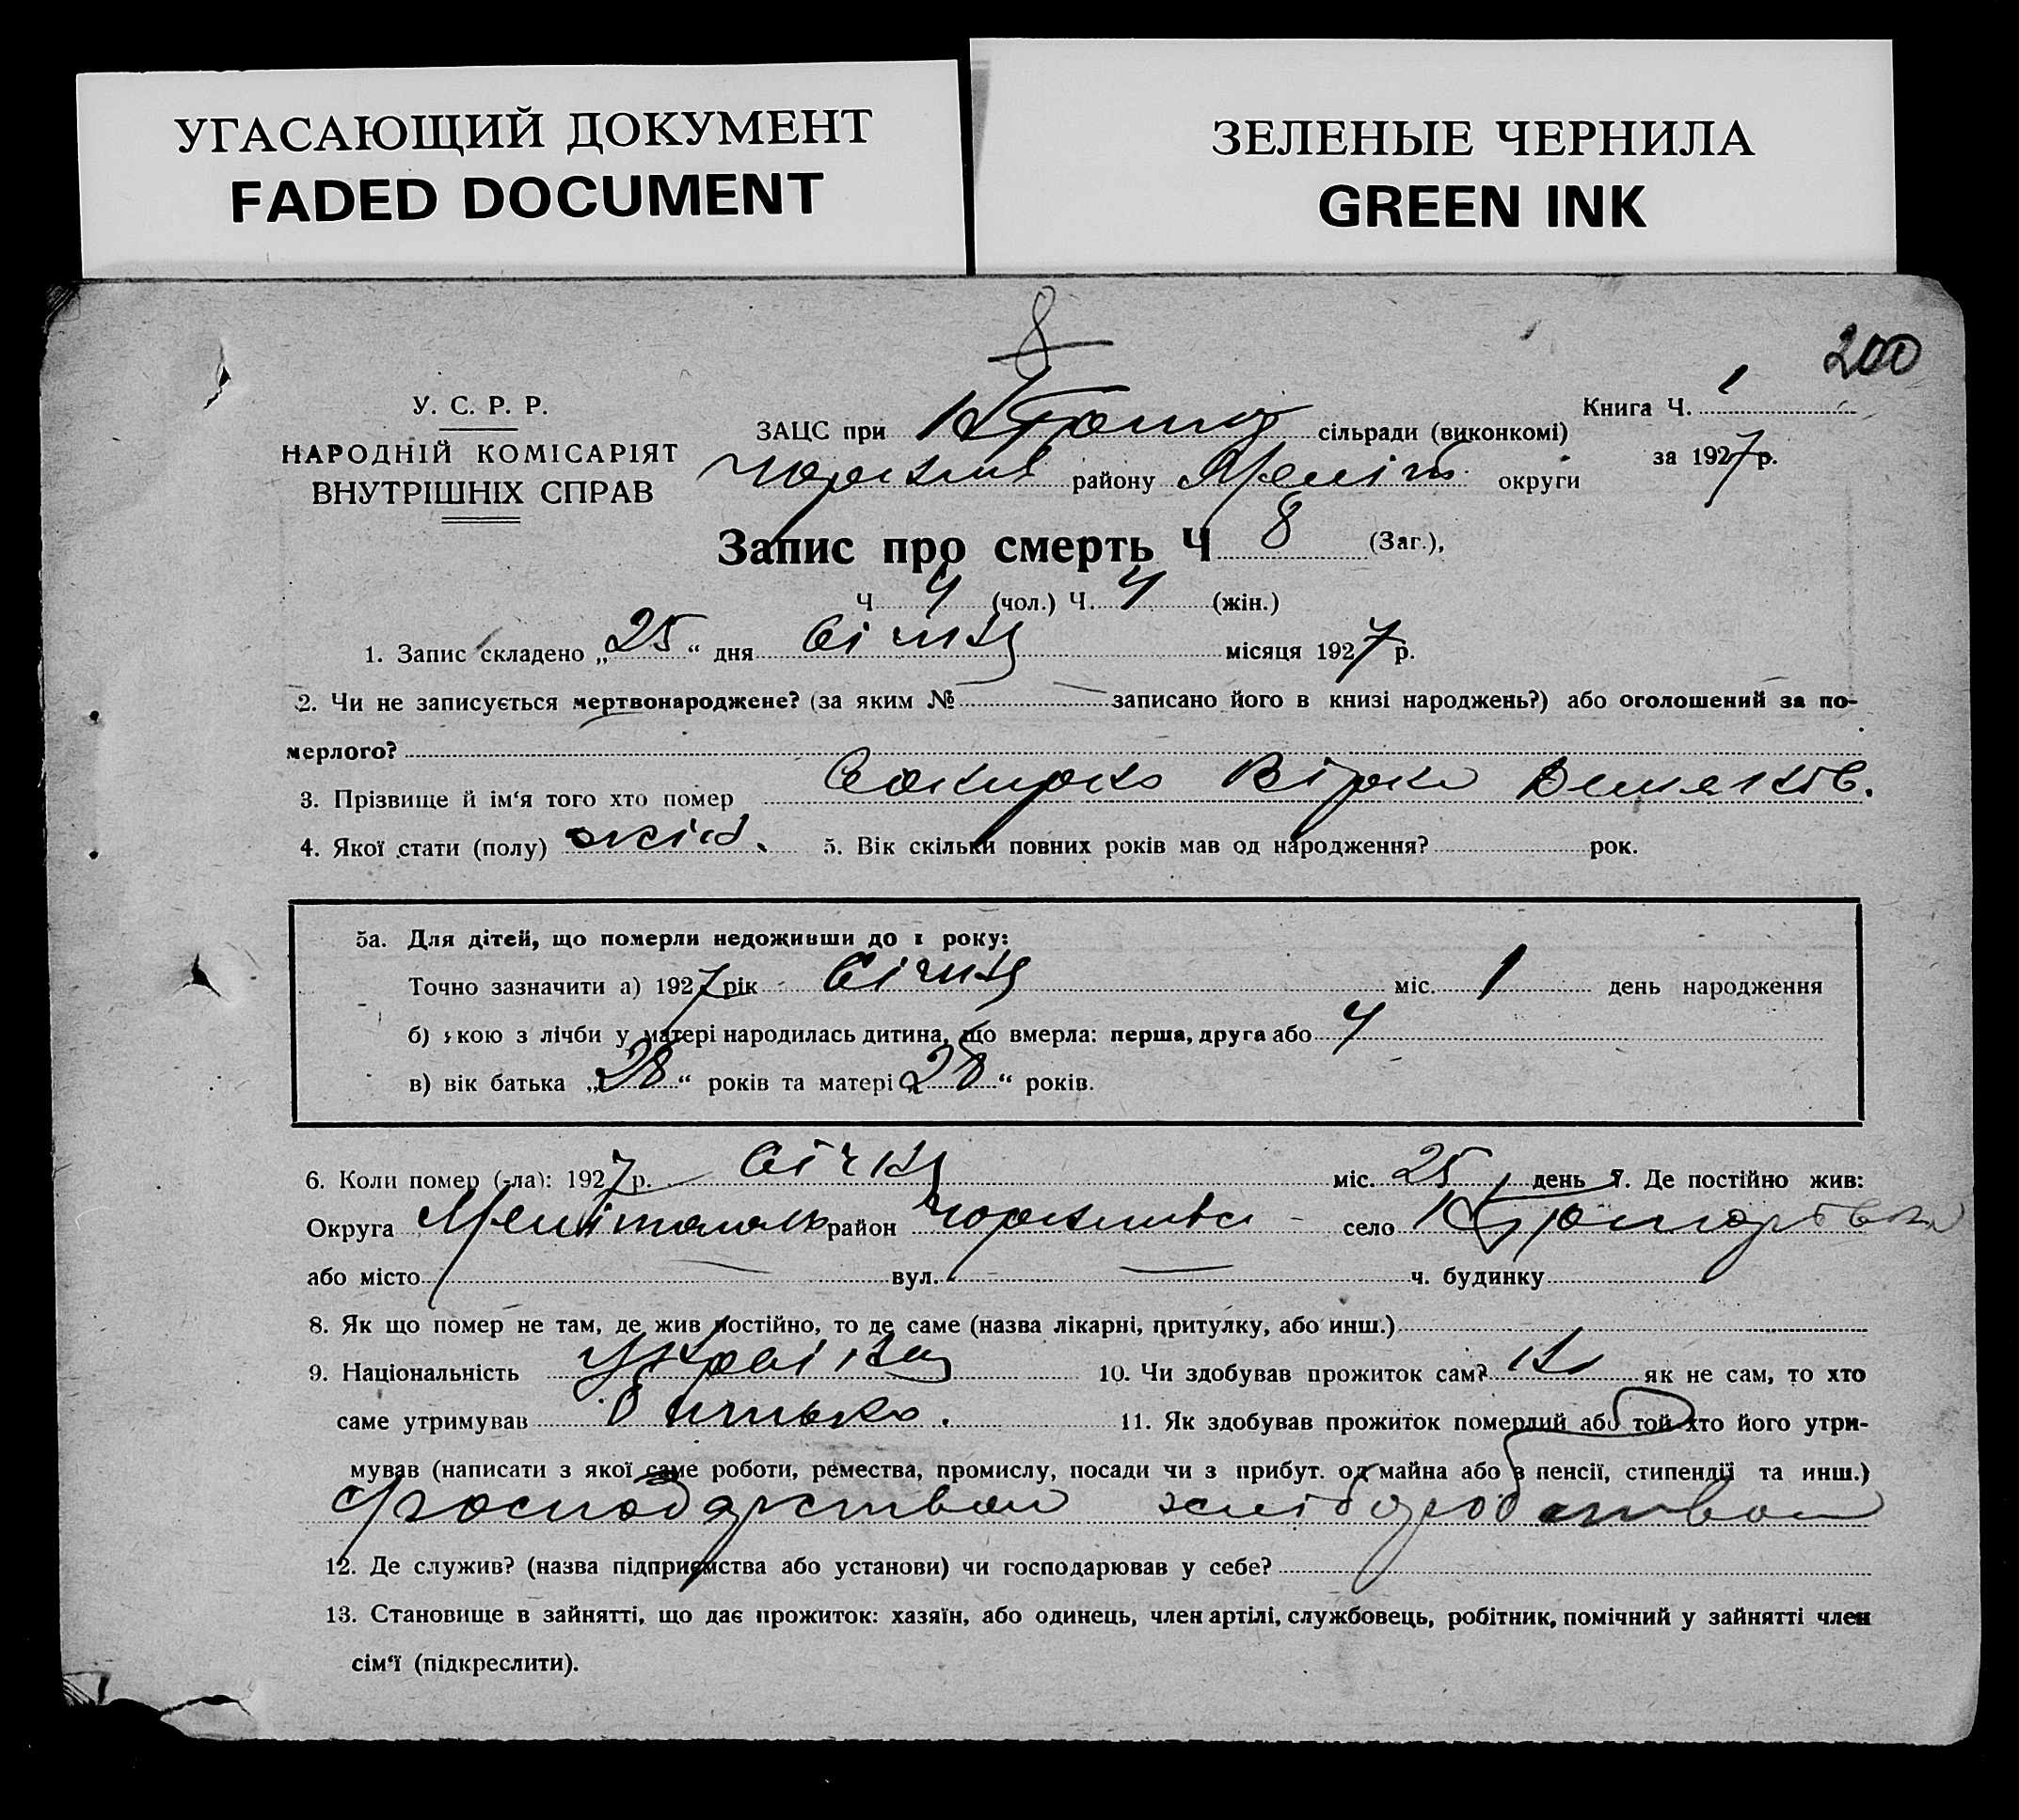 УГАСАЮЩИЙ ДОКУМЕНТ
FADED DOCUMENT
ЗЕЛЕНЫЕ ЧЕРНИЛА
GREEN INK
8
200
У. С. Р. Р.
НАРОДНІЙ КОМІСАРІЯТ
ВНУТРІШНІХ СПРАВ
Книга Ч. 1
за 1927 р.
ЗАЦС при сільради (виконкомі)
району Меліт. округи
Запис про смерть Ч 8 (Заг.),
Ч 4 (чол.) Ч. 4 (жін.)
1. Запис складено „25“ дня Січня місяця 1927 р.
2. Чи не записується мертвонароджене? (за яким № записано його в книзі народжень?) або оголошений за по-
мерлого?
3. Прізвище й ім‘я того хто помер
4. Якої стати (полу) жін. 5. Вік скільки повних років мав од народження? рок.
5а. Для дітей, що померли недоживши до 1 року:
Точно зазначити а) 1927 рік Січня міс. 1 день народження
б) якою з лічби у матері народилась дитина, що вмерла: перша, друга або 4
в) вік батька „28“ років та матері „28“ років.
6. Коли помер (-ла): 1927 р. Січня міс. 25 день 7. Де постійно жив:
Округа район село
або місто — вул. — ч. будинку
8. Як що помер не там, де жив постійно, то де саме (назва лікарні, притулку, або инш.)
9. Національність 10. Чи здобував прожиток сам? Ні як не сам, то хто
саме утримував Батько. 11. Як здобував прожиток померлий або той хто його утри-
мував (написати з якої саме роботи, ремества, промислу, посади чи з прибут. од майна або з пенсії, стипендії та инш.)
господарством хліборобством
12. Де служив? (назва підприємства або установи) чи господарював у себе?
13. Становище в зайнятті, що дає прожиток: хазяїн, або одинець, член артілі, службовець, робітник, помічний у зайнятті член
сім‘ї (підкреслити).